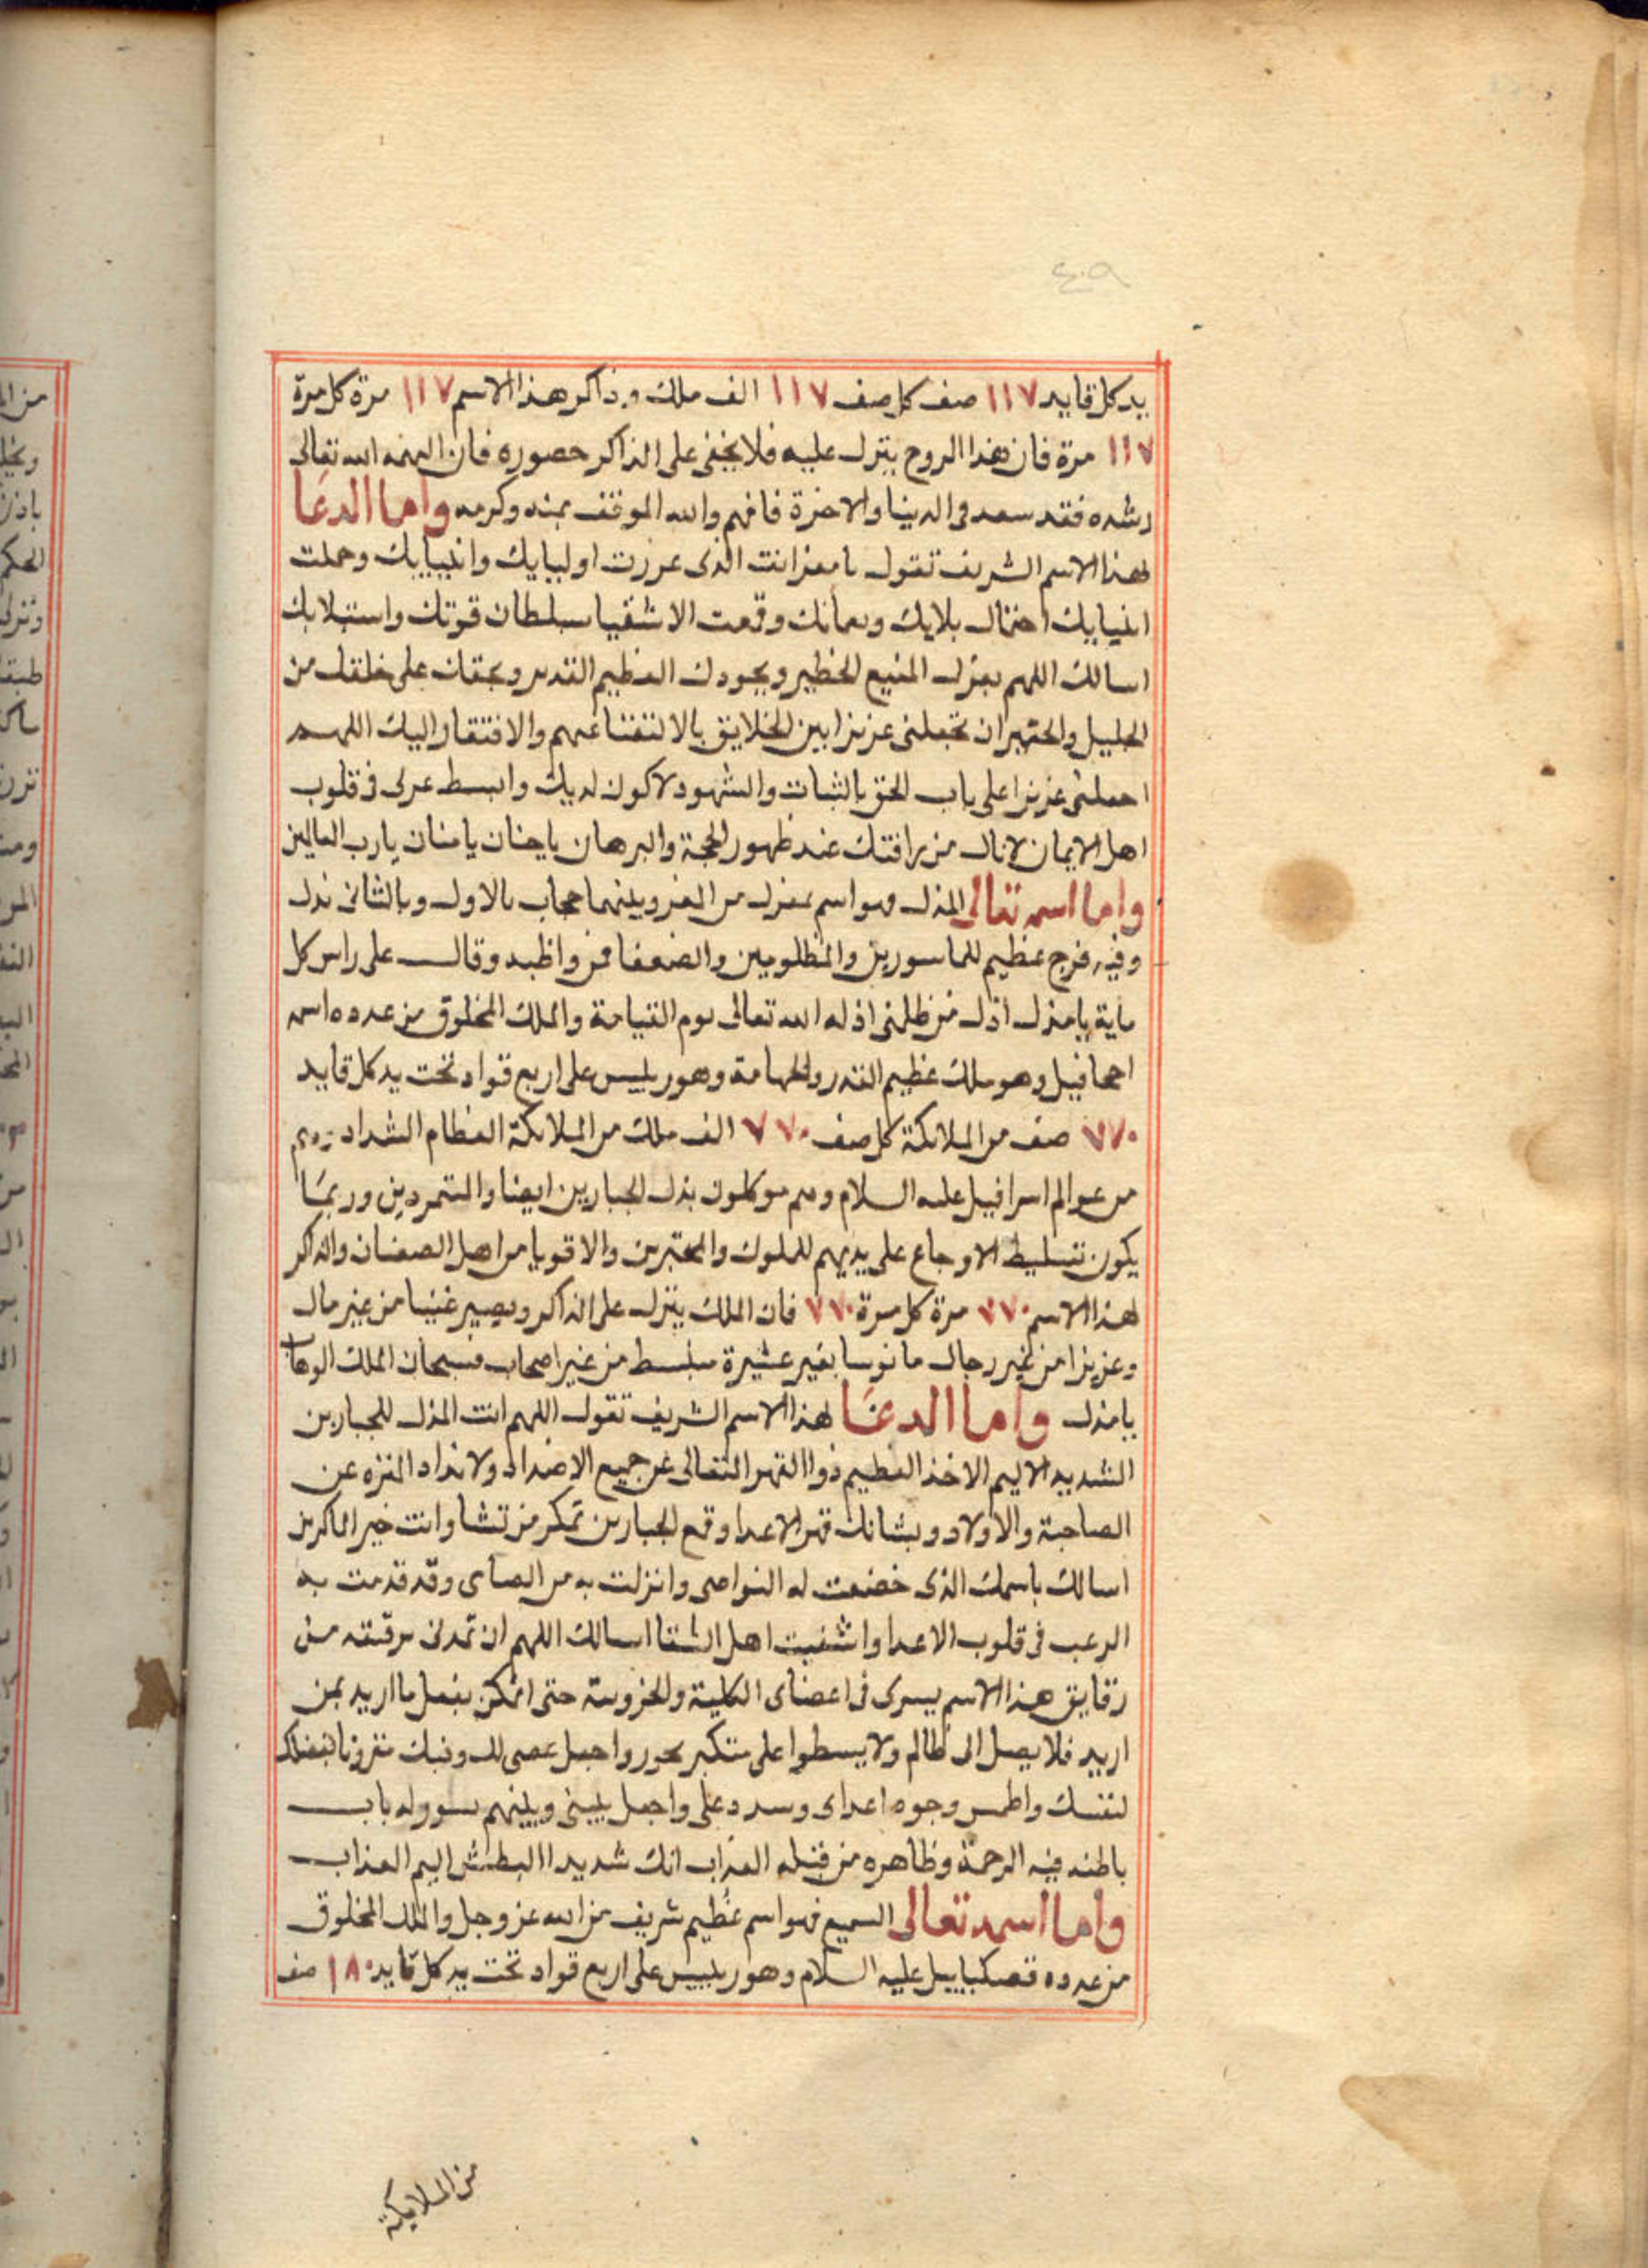 يد كل قايد ١١٧ صف كل صف ١١٧ الف ملك وذاكر هذا الاسم ١١٧ مرة كل مرة
١١٧ مرة فان هذا الروح ينزل عليه فلا يخفى على الذاكر حضوره فان الهمه الله تعالى
رشده فقد سعد في الدنيا والاخرة فافهم والله الموفق بمنه وكرمه واما الدعا
لهذا الاسم الشريف تقول يا معز انت الذي عززت اوليايك وانبيايك وحملت
احتمال بلايك وقمعت الاشقيا بسلطان قوتك واستيلايك
اسالك اللهم بعزك المنيع الخطير وبجودك العظيم القدير وبحقك على خلقك من
الجليل والحقير ان تجعلني عزيزا بين الخلايق بالا عنهم والافتقار اليك اللهم
اجعلني عزيزا على باب الحق بالثبات والشهود لاكون لديك وابسط عزى في قلوب
اهل الايمان لانال من رافتك عند ظهور الحجة والبرهان يا حنان يا منان يا رب العالمين
واما اسمه تعالى المذل فهو اسم بمعزل من المعز وبينهما حجاب بالاول وبالثاني
وفيه فرج عظيم للماسورين والمظلومين والضعفا فمن واظبه وقال على راس كل
ماية يا مذل اذل من ظلمني اذله الله تعالى يوم القيامة والملك المخلوق من عدده اسمه
وهو ملك عظيم القدر والمهامة وهو رييس على اربع قواد تحت يد كل قايد
٧٧٠ صف من الملائكة كل صف ٧٧٠ الف ملك من الملائكة العظام الشداد وهم
من عوالم اسرافيل عليه السلام وهم موكلون بذل الجبارين ايضا والمتمردين وربما
يكون تسليط الاوجاع على يديهم للملوك والاقويا من اهل والذاكر
لهذا الاسم ٧٧٠ مرة كل مرة ٧٧٠ فان الملك ينزل على الذاكر ويصير غنيا من غير مال
وعزيزا من غير رجال مانوسا بغير عشيرة من غير اصحاب فسبحان الملك الوهاب
يا مذل واما الدعا لهذا الاسم الشريف تقول اللهم انت المذل للجبارين
الشديد الاليم الاخذ العظيم ذوا القهر المتعالى عن جميع الاضداد ولانداد المنزه عن
الصاحبة والاولاد وبشانك قهر الاعدا وقمع الجبارين تمكر من تشا وانت خير الماكرين
اسالك باسمك الذي خضعت له النواصي وانزلت به من الصياصي وقد قدمت به
الرعب في قلوب الاعدا واشقيت اهل الشقا اسالك اللهم ان تمدني برقيقة من
رقايق هذا الاسم يسرى في اعضاى الكلية والجزوية حتى اتمكن بفعل ما اريد بمن
اريد فلا يصل الى ظالم ولا يسطوا على متكبر بجور واجعل غضبي لك وفيك مقرونا بغضبك
لنفسك واطمس وجوه اعداى وسدد على واجعل بيني وبينهم بسور له باب
باطنه فيه الرحمة وظاهره من قبله العذاب انك شديد البطش اليم العذاب
واما اسمه تعالى السميع فهو اسم عظيم شريف من الله عز وجل والملك المخلوق
من عدده عليه السلام وهو رييس على اربع قواد تحت يد كل قايد ١٨٠ صف
من الملايكة